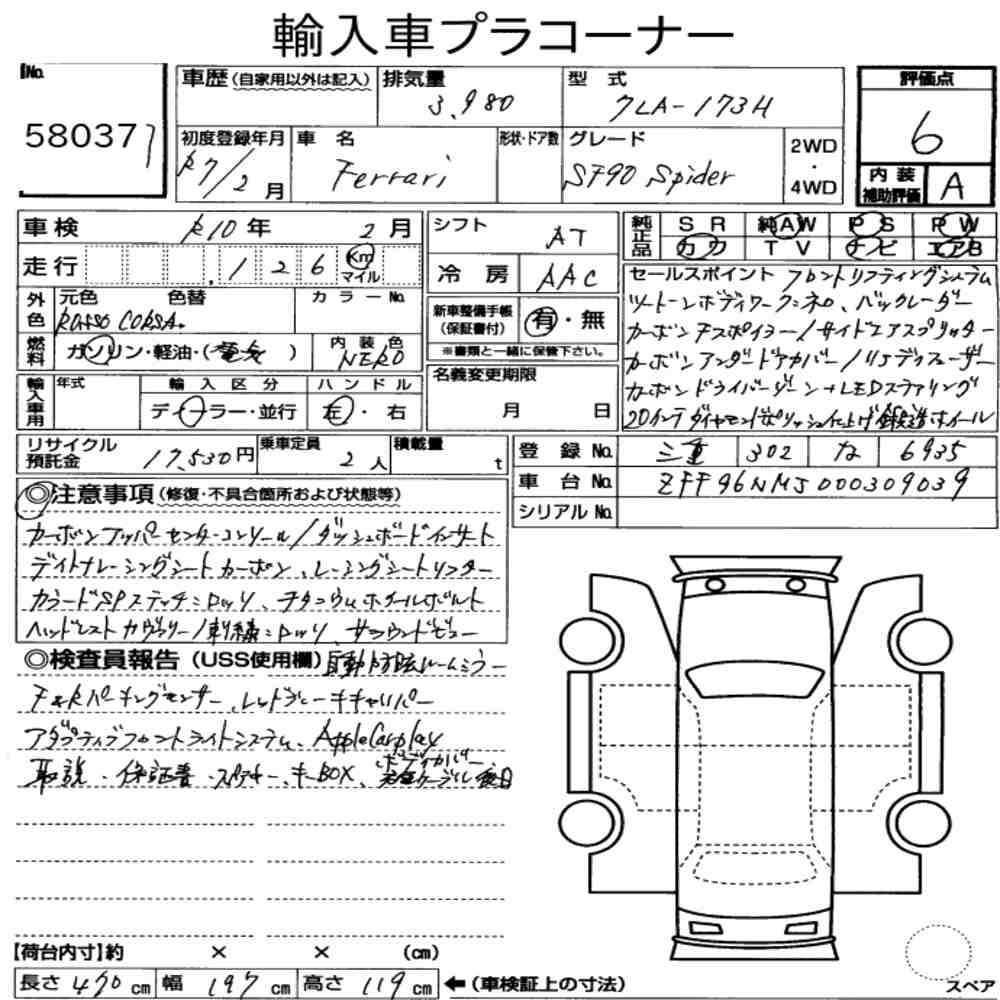 輸入車プラコーナー
No.
580371
車歴(自家用以外は記入)
排気量
3,980
型 式
7LA-173H
評価点
6
初度登録年月
R7/2月
車 名
Ferrari
形状・ドア数
グレード
SF90 Spider
2WD
・
4WD
内装
補助評価
A
車検 R10年 2月
走行 126 Km マイル
シフト AT
冷房 AAC
純正品
SR 純AW PS PW
カワ TV ナビ エアB
外色
元色 色替
Rosso CORSA.
カラーNo.
燃料
ガソリン・軽油・(電気)
内装色
NERO
新車整備手帳
(保証書付)
有・無
※書類と一緒に保管下さい。
セールスポイント フロントリフティングシステム
ツートーンボディワーク:ネロ、バックレーダー
カーボンFスポイラー/サイドエアスプリッター
カーボンアンダードアカバー/リアディフューザー
カーボンドライバーゾーン+LEDステアリング
20インチダイヤモンドポリッシュ仕上げ鍛造ホイール
輸入車用
年式
輸入区分
ディーラー・並行
ハンドル
左・右
名義変更期限
月 日
リサイクル
預託金
17,530円
乗車定員
2人
積載量
t
登録No. 三重 302 な 6935
車台No. ZFF96NMJ000309039
シリアルNo.
◎注意事項(修復・不具合箇所および状態等)
カーボンアッパーセンターコンソール/ダッシュボードインサート
デイトナレーシングシートカーボン、レーシングシートリフター
カラードSPステッチ:ロッソ、チタニウムホイールボルト
ヘッドレストカヴァリーノ刺繍:ロッソ、サラウンドビュー
◎検査員報告(USS使用欄)自動防眩ルームミラー
F&Rパーキングセンサー、レッドブレーキキャリパー
アダプティブフロントライトシステム、AppleCarplay
取説・保証書・スペアキー、キーBOX、ボディカバー
充電ケーブル後日
【荷台内寸】約 × × (cm)
長さ 470cm 幅 197cm 高さ 119cm
←(車検証上の寸法)
スペア